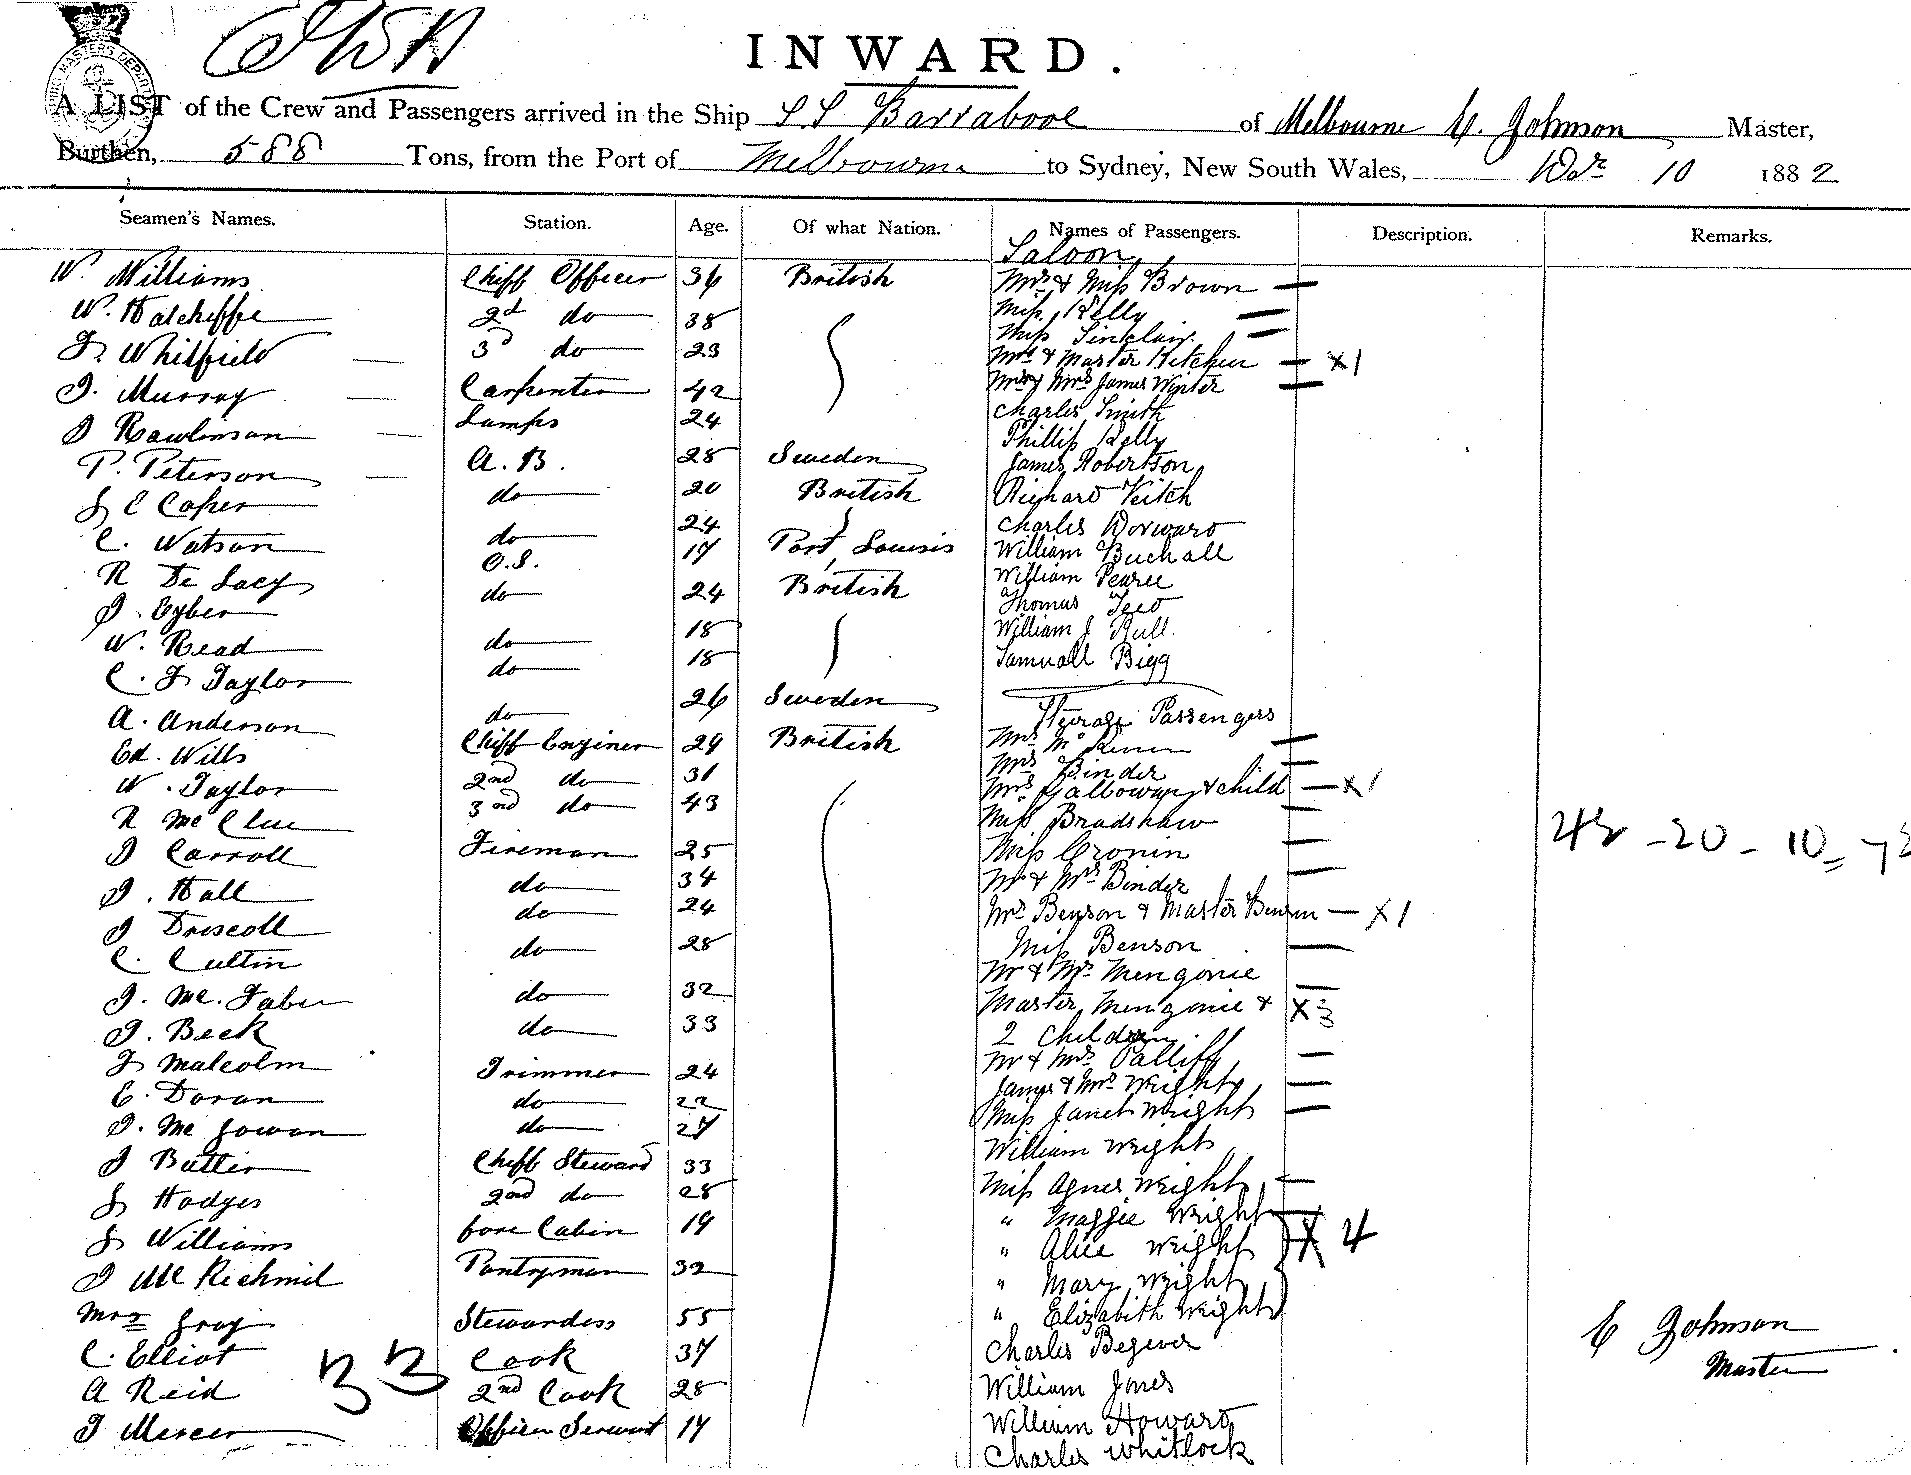 INWARD.
A LIST of the Crew and Passengers arrived in the Ship S.S Barrabool of Melbourne C. Johnson Master,
Burthen, 588 Tons, from the Port of Melbourne to Sydney, New South Wales, Decr 10 1882
Seamen's Names. Station. Age. Of what Nation. Names of Passengers. Description. Remarks.
Saloon
W. Williams Chiff Officer 36 British Mrs & Miss Brown
W. 2d do 38 Miss Kelly
Miss Sinclair
J. Whitfield 3d do 23 Mrs & Master Kitchen x1
J. Murray Carpenter 42 Mr & Mrs James Winter
J Rawlinson Lamps 24 Charles Smith
Phillip Kelly
P. Peterson A. B. 28 Sweden James Robertson
J C Caper do 20 British Richard Veitch
C. Watson do 24 Charles Dorward
R De Lacy O.S. 17 Port Louis William Buchall
J. Eyber do 24 British William Pearce
Thomas Teed
W. Read do 18 William J Bull
C. J Taylor do 18 Samuall Bigg
A. Anderson do 26 Sweden
Steerage Passengers
Ed. Wills Chiff Enginer 29 British Mrs Mc
W. Taylor 2nd do 31 Mrs Binder
R McClue 3nd do 43 Mrs Galloway & child x1
Miss Bradshaw
J Carroll Fireman 25 Miss Cronin
J. Hall do 34 Mr & Mrs Binder
J Driscoll do 24 Mrs Benson & Master Benson x1
C. Cultin do 28 Miss Benson
Mr & Mrs Mengonie
J. Mc. Faber do 32 Master Mengonie & x3
J. Beck do 33 2 Children
J Malcolm Trimmer 24 Mr & Mrs Palliff
E. Doran do 22 James & Mrs Wright
J. Mc Gowan do 27 Miss Janet Wright
J Butler Chiff Steward 33 William Wright
J Hodges 2nd do 28 Miss Agnes Wright
J Williams fore Cabin 19 " Maggie Wright
" Alice Wright x 4
J Mc Richmil Pantryman 32 " Mary Wright
Mrs Gray Stewardess 55 " Elizabeth Wright
C. Elliot Cook 37 Charles Begever
A Reid 2nd Cook 28 William Jones
33
J Mercer Officer Servant 17 William Howard
Charles Whitlock
C Johnson
Master